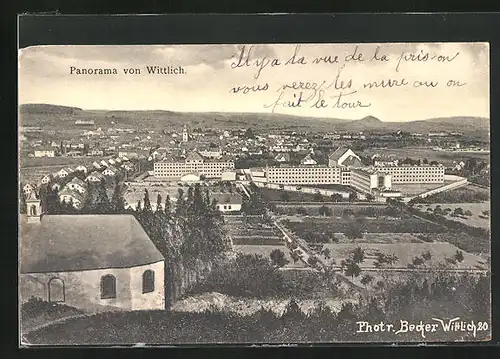 Panorama von Wittlich.
Il y a la vue de la prison
vous verez les mure ou on
fait le tour
Photr. Becker Wittlich 20